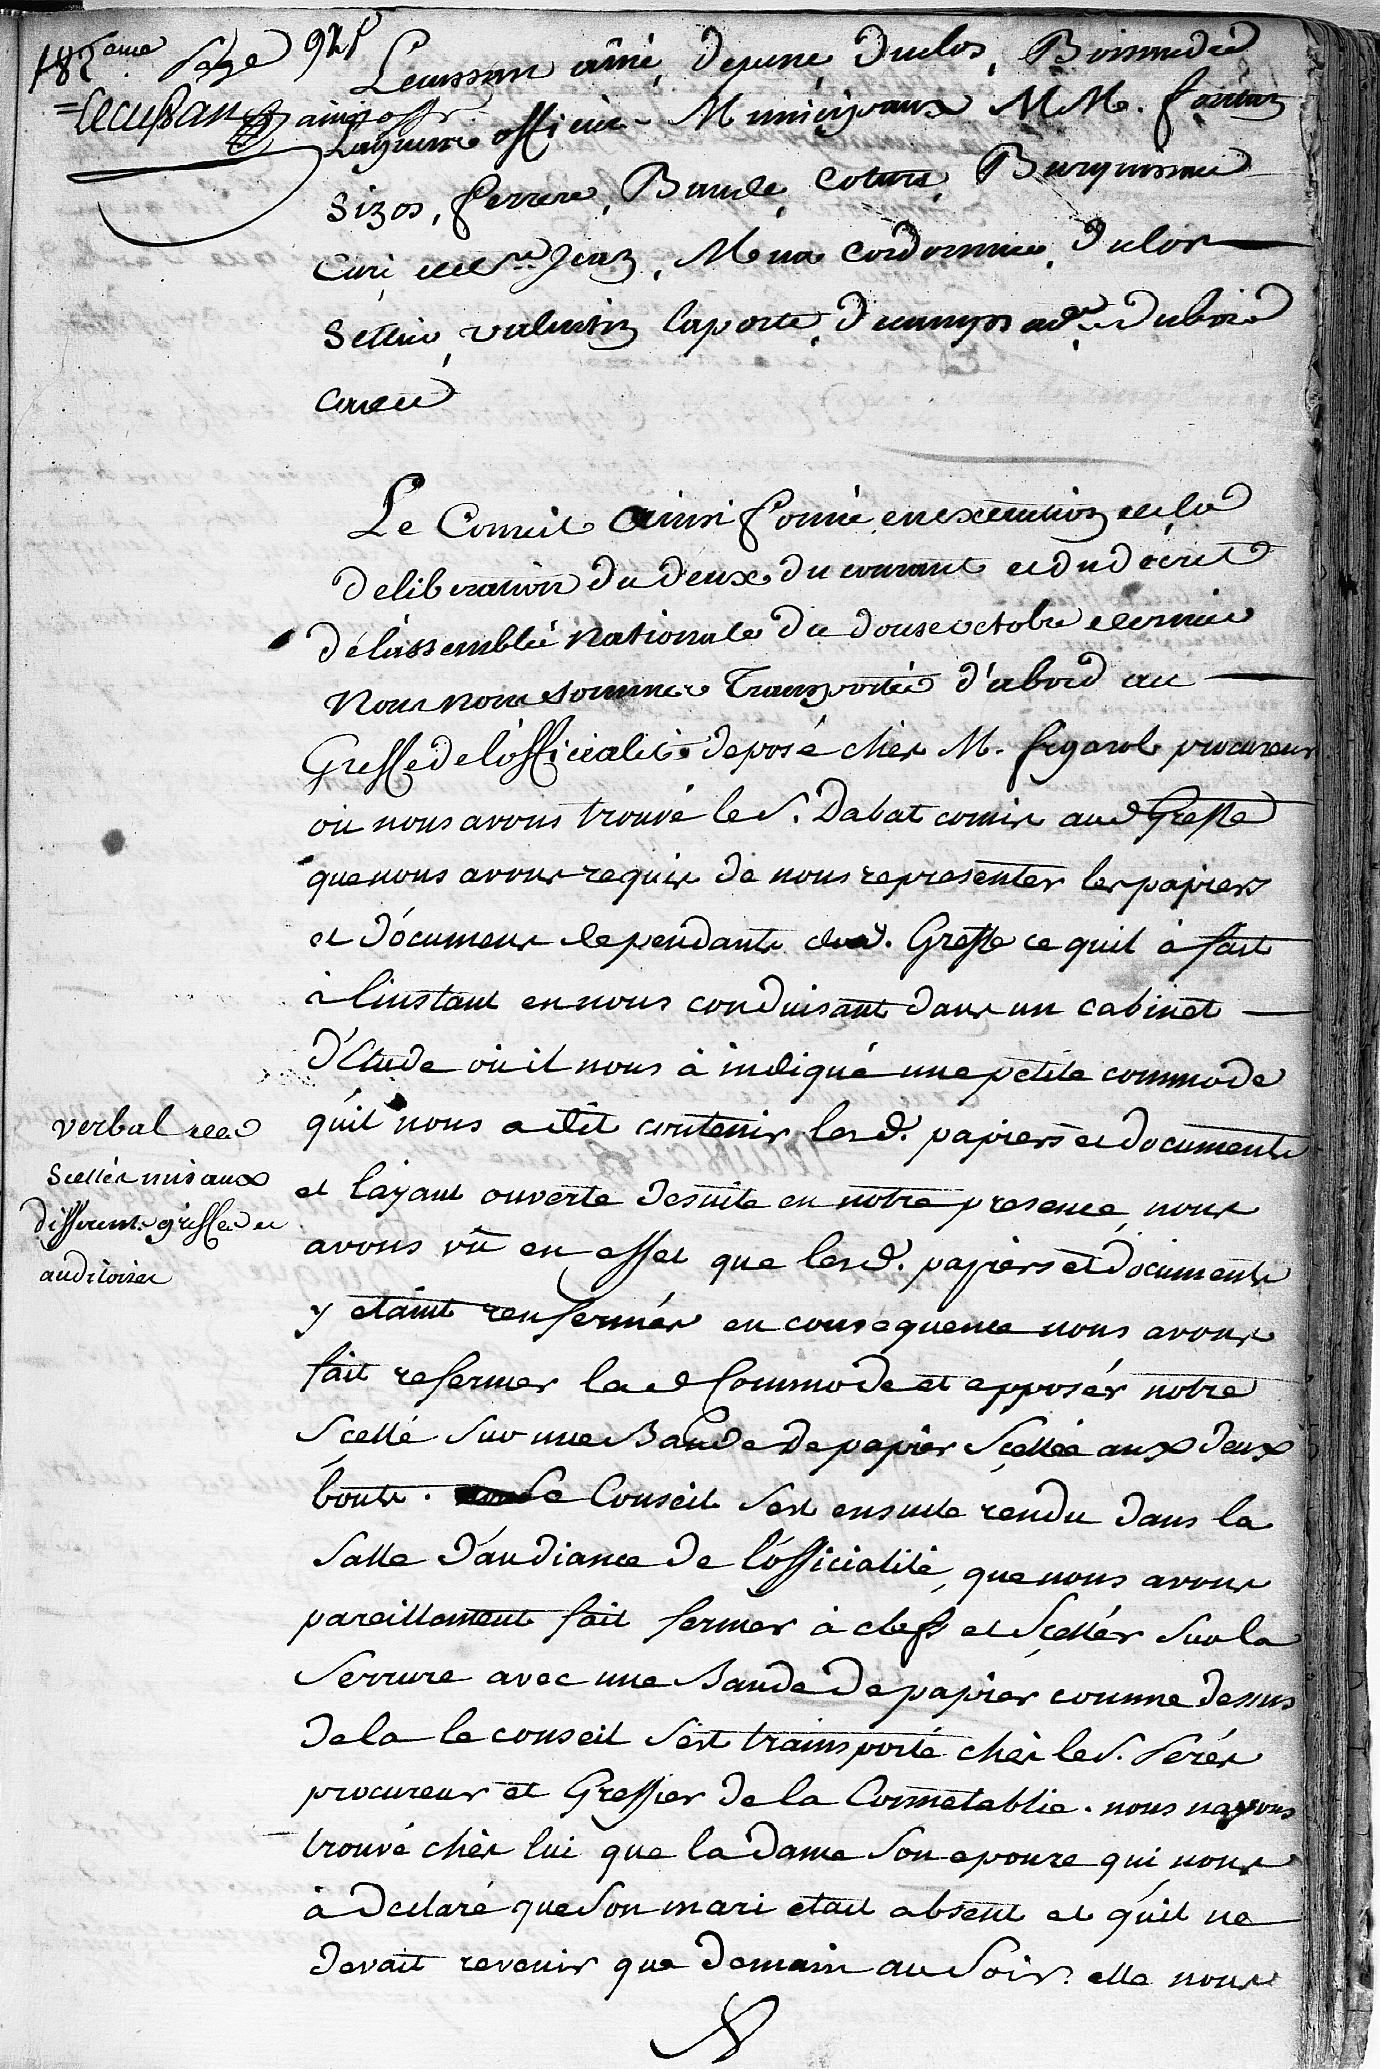 185eme page
Lecussan ainé offr.
Lecussan ainé, Dejune, Duclos,
officiers Municipaux MM.
Sizos, ferrere, Baude, Coture,
Curé de St. Jean, Cordonnier, Duclos
Sellier, valentin laporte, Dubois
Le Conseil ainsi formé en execution de la
deliberation du deux du courant et du décret
de l'assemblée nationale du douse octobre dernier
Nous nous sommes Transportés d'abord au
Greffe de l'officialité deposé chés M. figarol procureur
ou nous avons trouvé le S. Dabat comis aud Greffe
que nous avons requis de nous representer les papiers
et documens dependants dud. Greffe ce quil à fait
à linstant en nous conduisant dans un cabinet
d'Etude où il nous à indiqué une petite commode
qu'il nous a dit contenir lesd. papiers et documents
verbal des
Scellés mis aux
differents greffes et
auditoires
et layant ouverte desuite en notre presence, nous
avons vû en effet que lesd. papiers et documents
y etaint renfermés en consequence nous avons
fait refermer lad Commode et apposér notre
Scellé sur une Bande de papier Scellée aux deux
bouts. Le Conseil s'est ensuite rendu dans la
Salle d'audiance de l'officialité, que nous avons
pareillement fait fermer à cleff et Scellér sur la
Serrure avec une Bande de papiér comme dessus
dela le conseil s'est transporté chés le S. Serés
procureur et Greffier de la Connetablie. nous nayons
trouvé chés lui que la dame son epouse qui nous
à declaré que son mari etait absent et qu'il ne
devait revenir que demain au Soir. elle nous